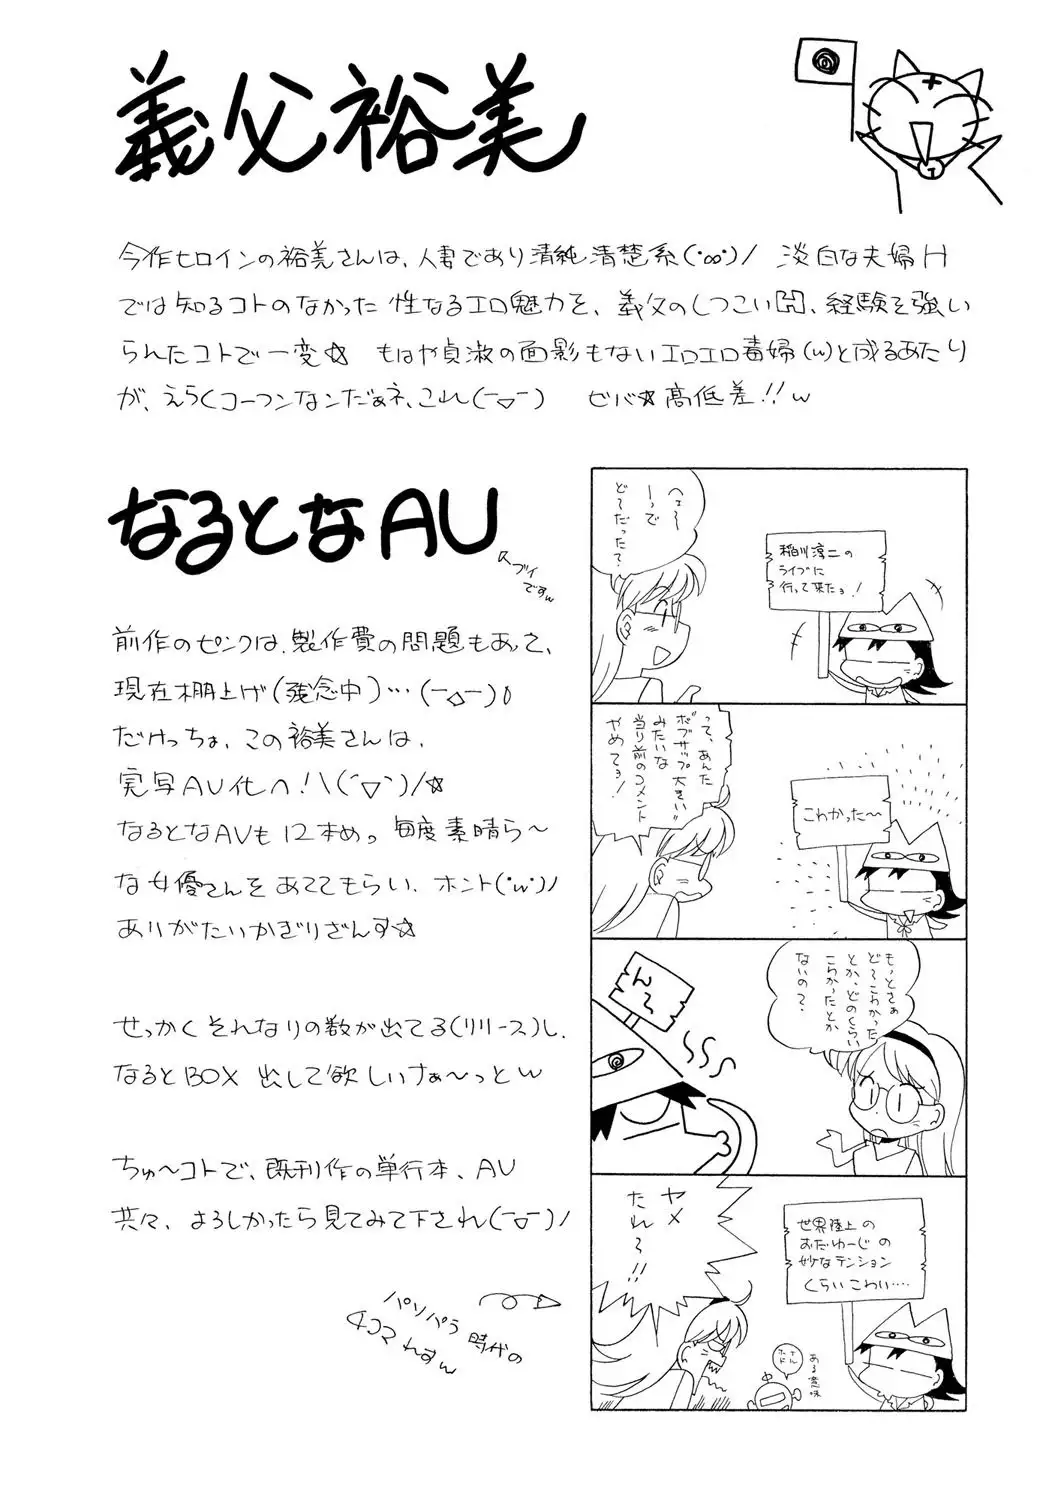 義父裕美
今作ヒロインの裕美さんは、人妻であり清純清楚系(･∞･)/ 淡白な夫婦H
では知るコトのなかった 性なるエロ魅力を、義父のしつこいH、経験を強い
られたコトで一変☆ もはや貞淑の面影もないエロエロ毒婦(w)と成るあたり
が、えらくコーフンなンだぁネ、これ(ー▽ー) ビバ☆高低差!!w
なるとなAU
スブイ
ですw
前作のピンクは、製作費の問題もあって、
現在棚上げ(残念中)…(ー△ー)0
だけっちょ、この裕美さんは、
実写AV化へ!\(´▽`)/☆
なるとなAVも12本めっ 毎度素晴ら〜
な女優さんをあててもらい、ホント(･w･)ﾉ
ありがたいかぎりざんす☆
せっかくそれなりの数が出てる(リリース)し、
なるとBOX 出して欲しいナぁ〜っとw
ちゅ〜コトで、既刊作の単行本、AV
共々、よろしかったら見てみて下され(ー▽ー)ﾉ
パソパラ時代の
4コマ れすw
へぇ〜
ーって
ど〜だった?
稲川淳二の
ライブに
行って来たョ!
って、あんた
ボブサップ大きい
みたいな
当り前のコメント
やめてョ!
こわかった〜
もっとさぁ
ど〜こわかった
とか、どのくらい
こわかったとか
ないの?
ん〜
ヤメ
たれ〜!!
世界陸上の
おだゆーじの
妙なテンション
くらいこわい…
ナル
ホド
ある意味